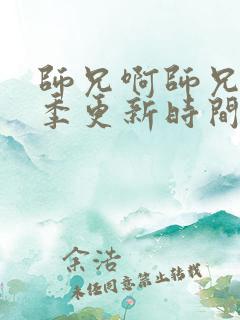 師兄啊師兄
季更新時間
余浩
未经同意禁止转载